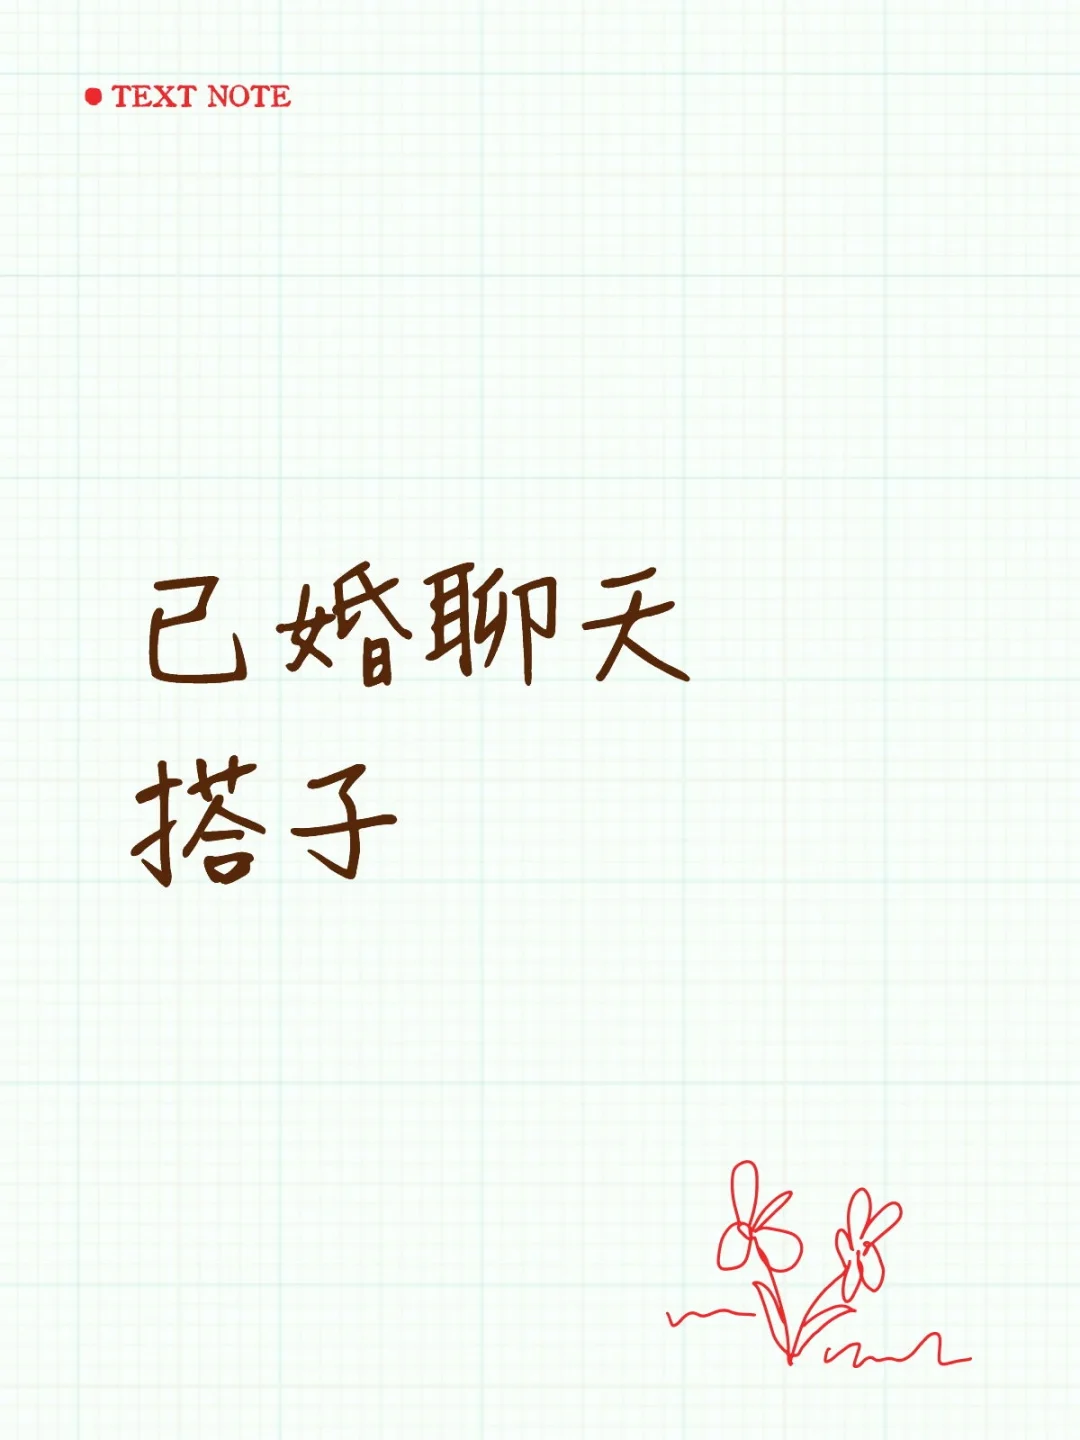 TEXT NOTE
已婚聊天
搭子